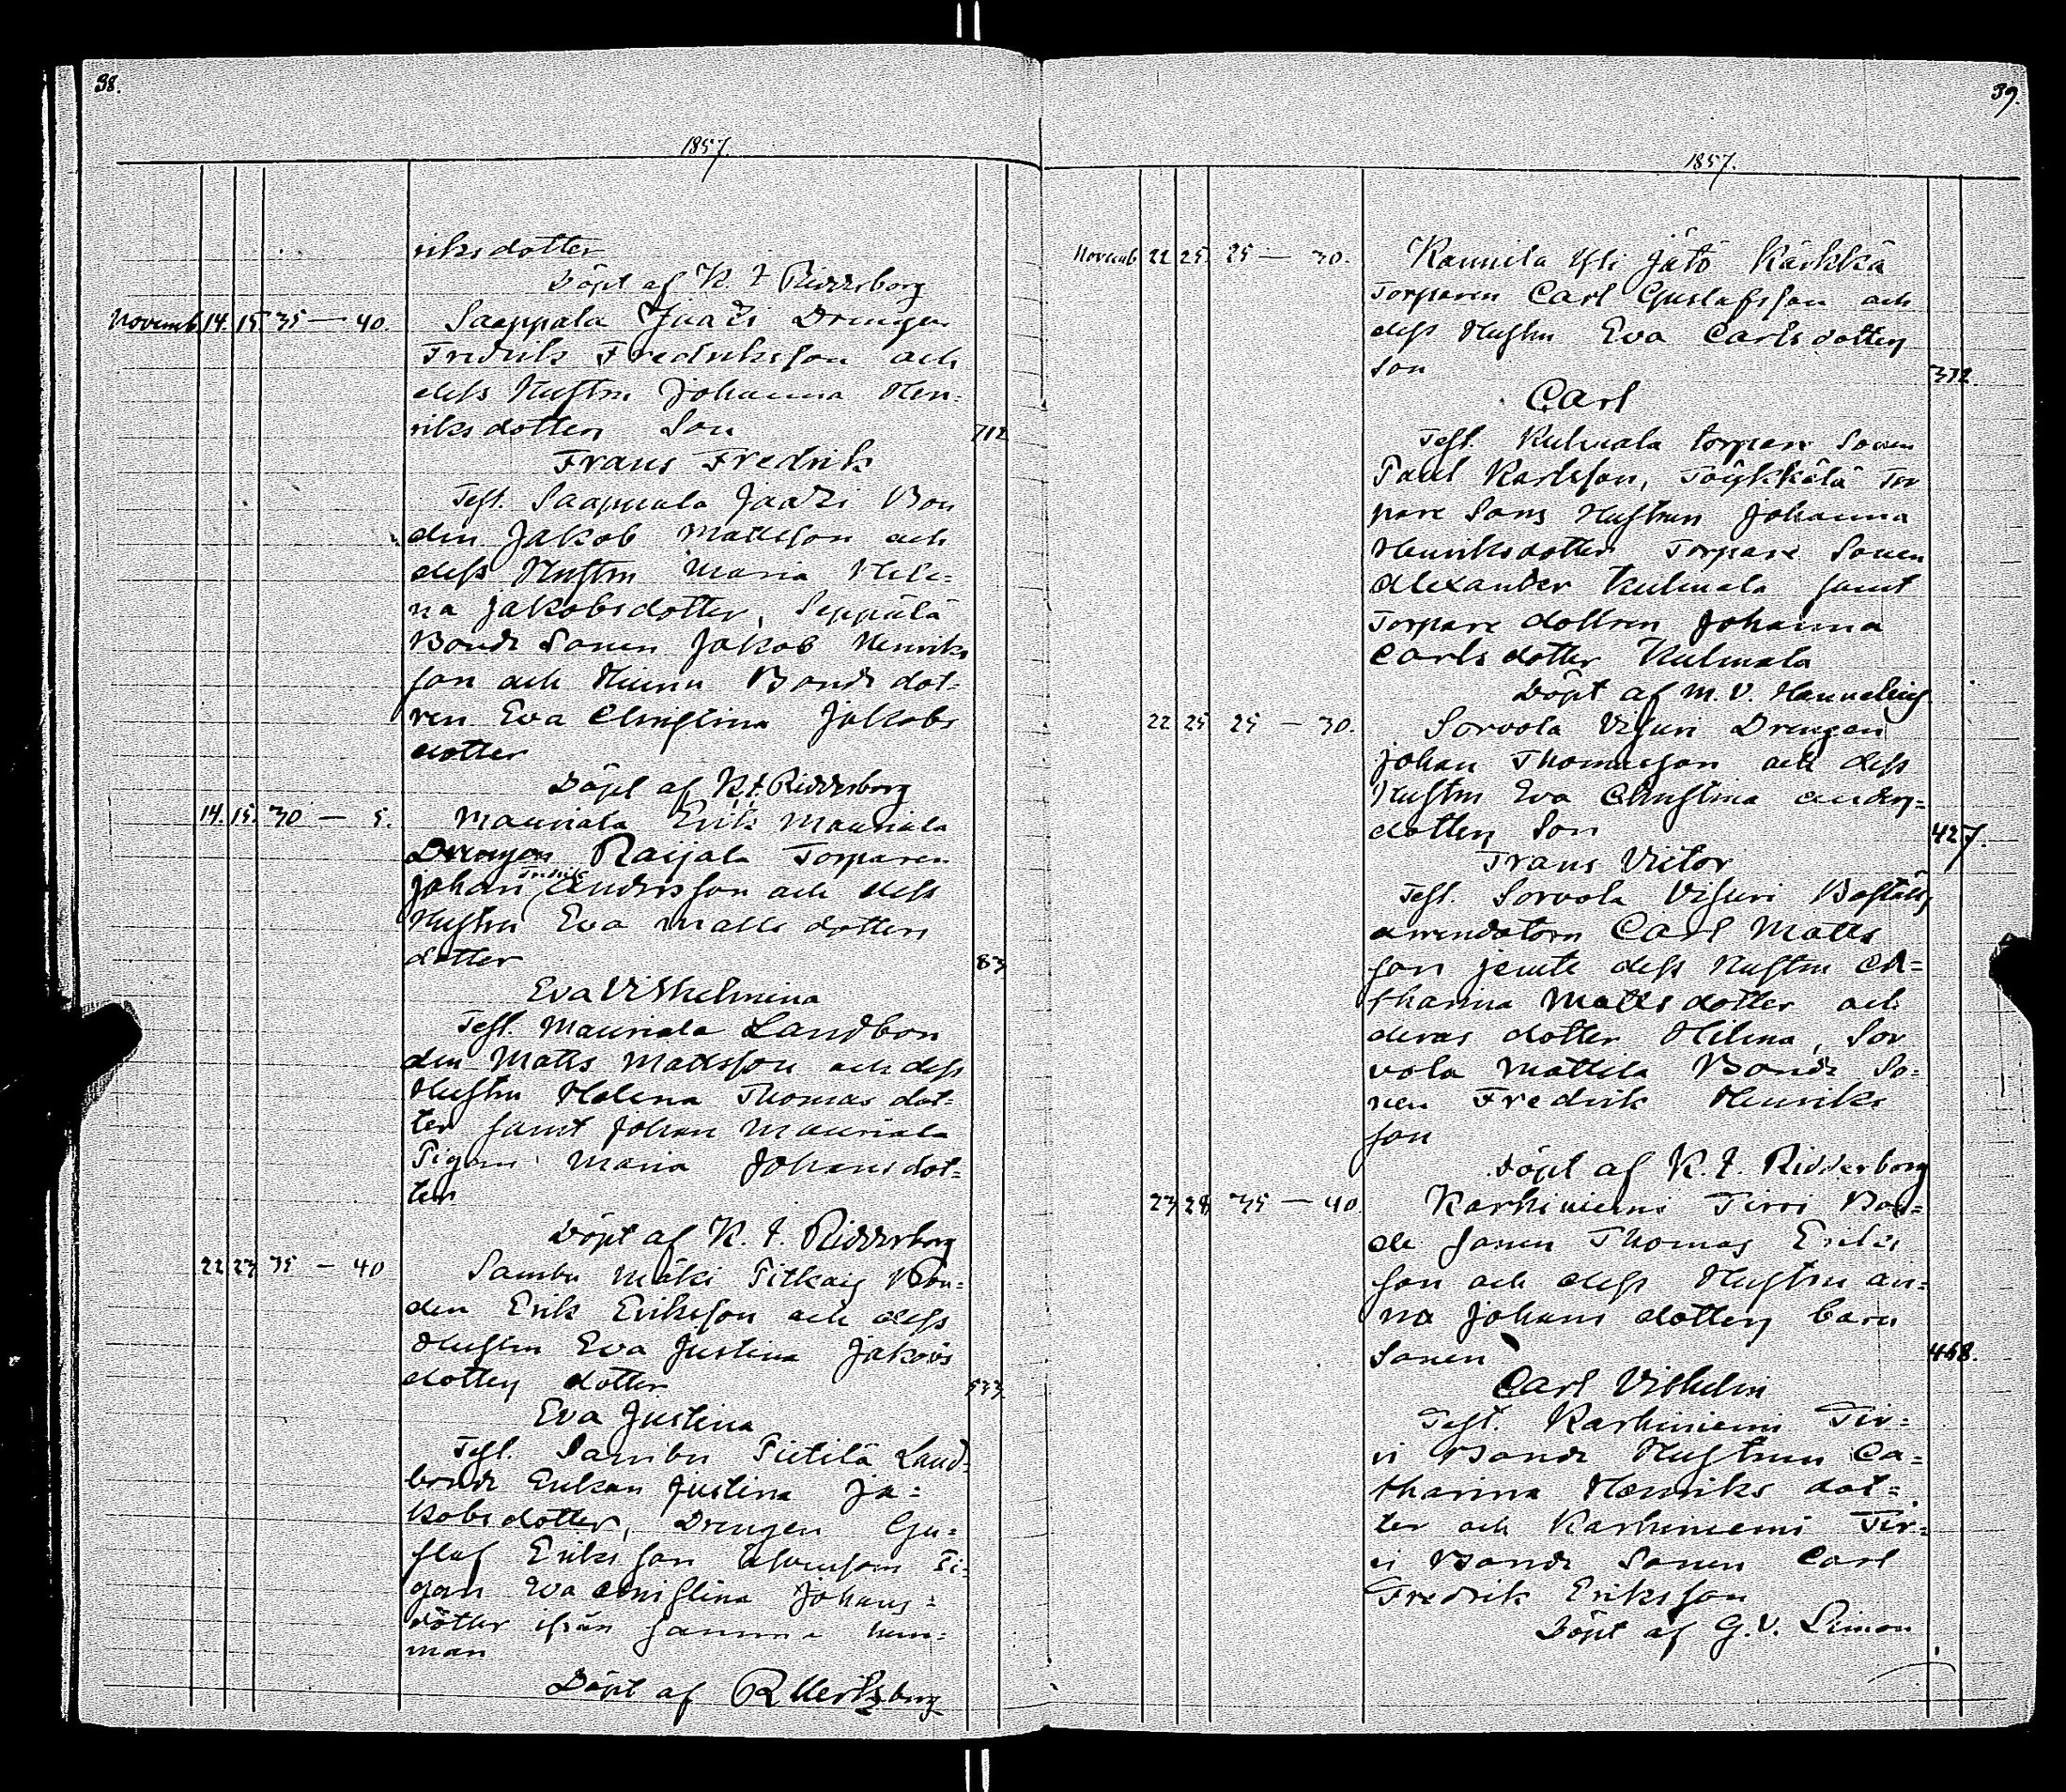 38.
1857.
riksdotter
Döpt af K. F. Riddersborg
Novemb. 14. 15. 35 — 40. Saappala Jaari Drengen
Fredrik Fredriksson och
dess Hustru Johanna Hen-
riksdotters Son 712
Frans Fredrik
Test. Saappala Jaari Bon
den Jakob Mattsson och
dess Hustru Maria Hele-
na Jakobsdotter, Seppälä
Bonde Sonen Jakob Henriks
son och Bonde dot-
ren Eva Christina Jakobs
dotter
Döpt af K. F. Riddersborg
14. 15. 30 — 5. Mauriala Erik Mauriala
Drengen Raijala Torparen
Johan Fredrik Andersson och dess
Hustru Eva Matts dotters
dotter 83
Eva Vilhelmina
Test. Mauriala Landbon
den Matts Mattsson och dess
Hustru Helena Thomas dot-
ter samt Johan Mauriala
Pigan Maria Johansdot-
ter
Döpt af K. F. Riddersborg
22 23 35 — 40 Sambu Mäki Pitkäis Bon-
den Erik Eriksson och dess
Hustru Eva Justina Jakobs
dotters dotter 533
Eva Justina
Test. Sambu Pietilä Land-
bonde Enkan Justina Ja-
kobsdotter, Drengen Gu-
staf Eriksson Pi-
gan Eva Christina Johans-
dotter ifrån samma hem-
man
Döpt af R Mertzberg
39.
1857.
Novemb 22 25. 25 — 30. Kaunila Yli Jätö Kärkkä
Torparen Carl Gustafsson och
dess Hustru Eva Carlsdotters
Son 372.
Carl
Test. Kulmala torpare Sonen
Paul Karlsson, Töykkälä Tor
pare Sons Hustrun Johanna
Henriksdotter Torpare Sonen
Alexander Kulmala samt
Torpare dottren Johanna
Carlsdotter Kulmala
Döpt af M. V. Hannelius
22 25 25 — 30. Sorvola Visuri Drengen
Johan Thomasson och dess
Hustru Eva Christina Anders-
dotters Son 427.
Frans Victor
Test. Sorvola Visuri Boställs
arrendatorn Carl Matts
son jemte dess Hustru Ca-
tharina Mattsdotter och
deras dotter Helena, Sor
vola Mattila Bonde So-
nen Fredrik Henriks
son
Döpt af K. F. Ridderborg
23 28 35 — 40. Karhiniemi Tirri Bon-
de Sonen Thomas Eriks
son och dess Hustru An-
na Johans dotters barn
Sonen 458.
Carl Vilhelm
Test. Karhiniemi Tir-
ri Bonde Hustrun Ca-
tharina Henriks dot-
ter och Karhiniemi Tir-
ri Bonde Sonen Carl
Fredrik Eriksson
Döpt af G. V. Limon